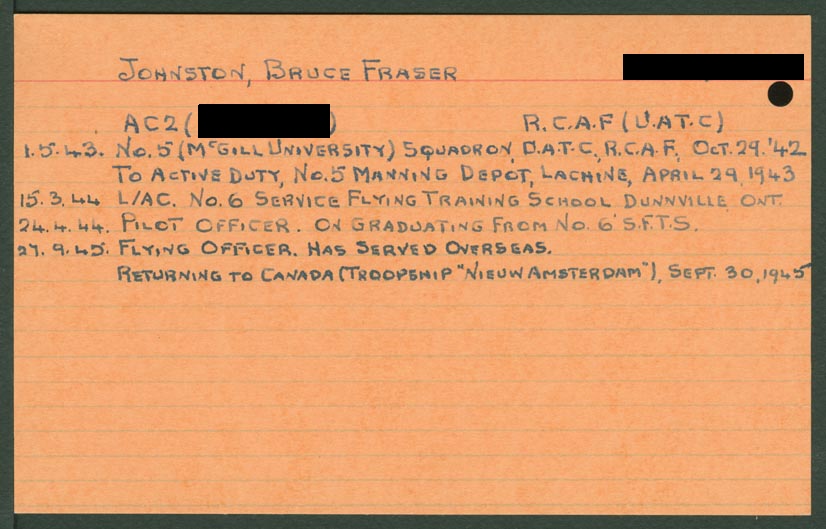 JOHNSTON, BRUCE FRASER
AC2 ( ) R.C.A.F (U.A.T.C)
1.5.43. NO. 5 (MCGILL UNIVERSITY) SQUADRON, U.A.T.C., R.C.A.F., OCT. 29. '42
TO ACTIVE DUTY, NO. 5 MANNING DEPOT, LACHINE, APRIL 29, 1943
15.3.44 L/AC. NO. 6 SERVICE FLYING TRAINING SCHOOL DUNNVILLE, ONT.
24.4.44. PILOT OFFICER. ON GRADUATING FROM NO. 6 S.F.T.S.
27.9.45. FLYING OFFICER. HAS SERVED OVERSEAS.
RETURNING TO CANADA (TROOPSHIP "NIEUW AMSTERDAM"), SEPT. 30, 1945